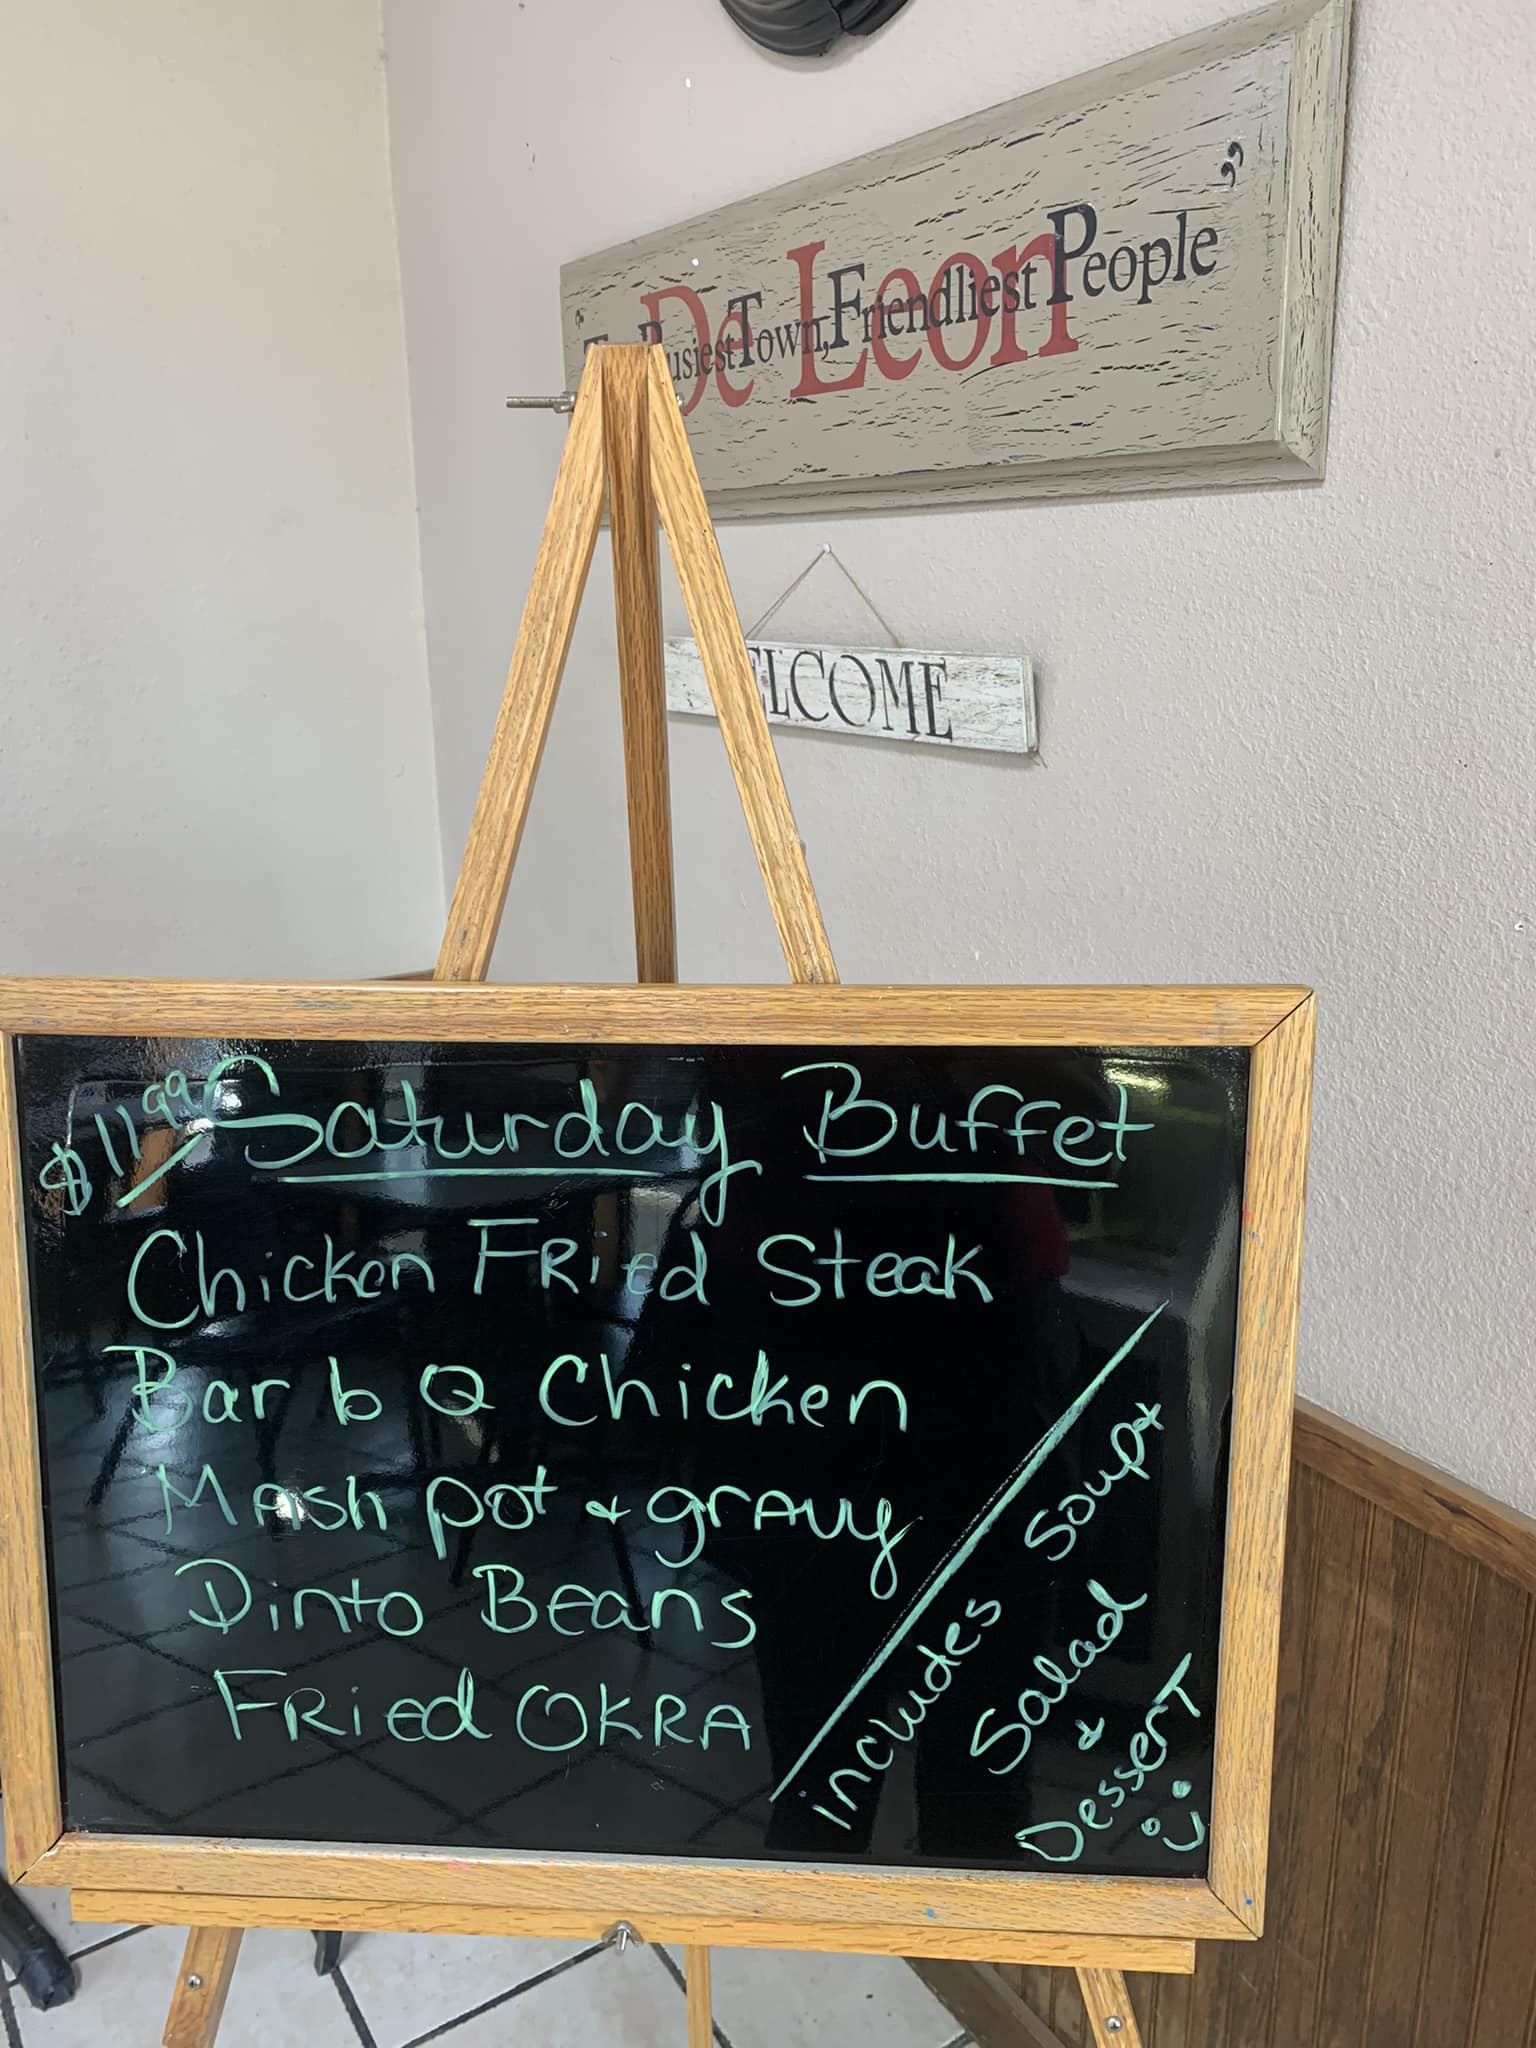 “
De Leon
Busiest Town, Friendliest People”
WELCOME
$11.99 Saturday Buffet
Chicken FRied Steak
Bar b Q Chicken
MAsh pot & gRAvy
Pinto BEans
FRied OKRA
includes Soup &
Salad
&
DesserT